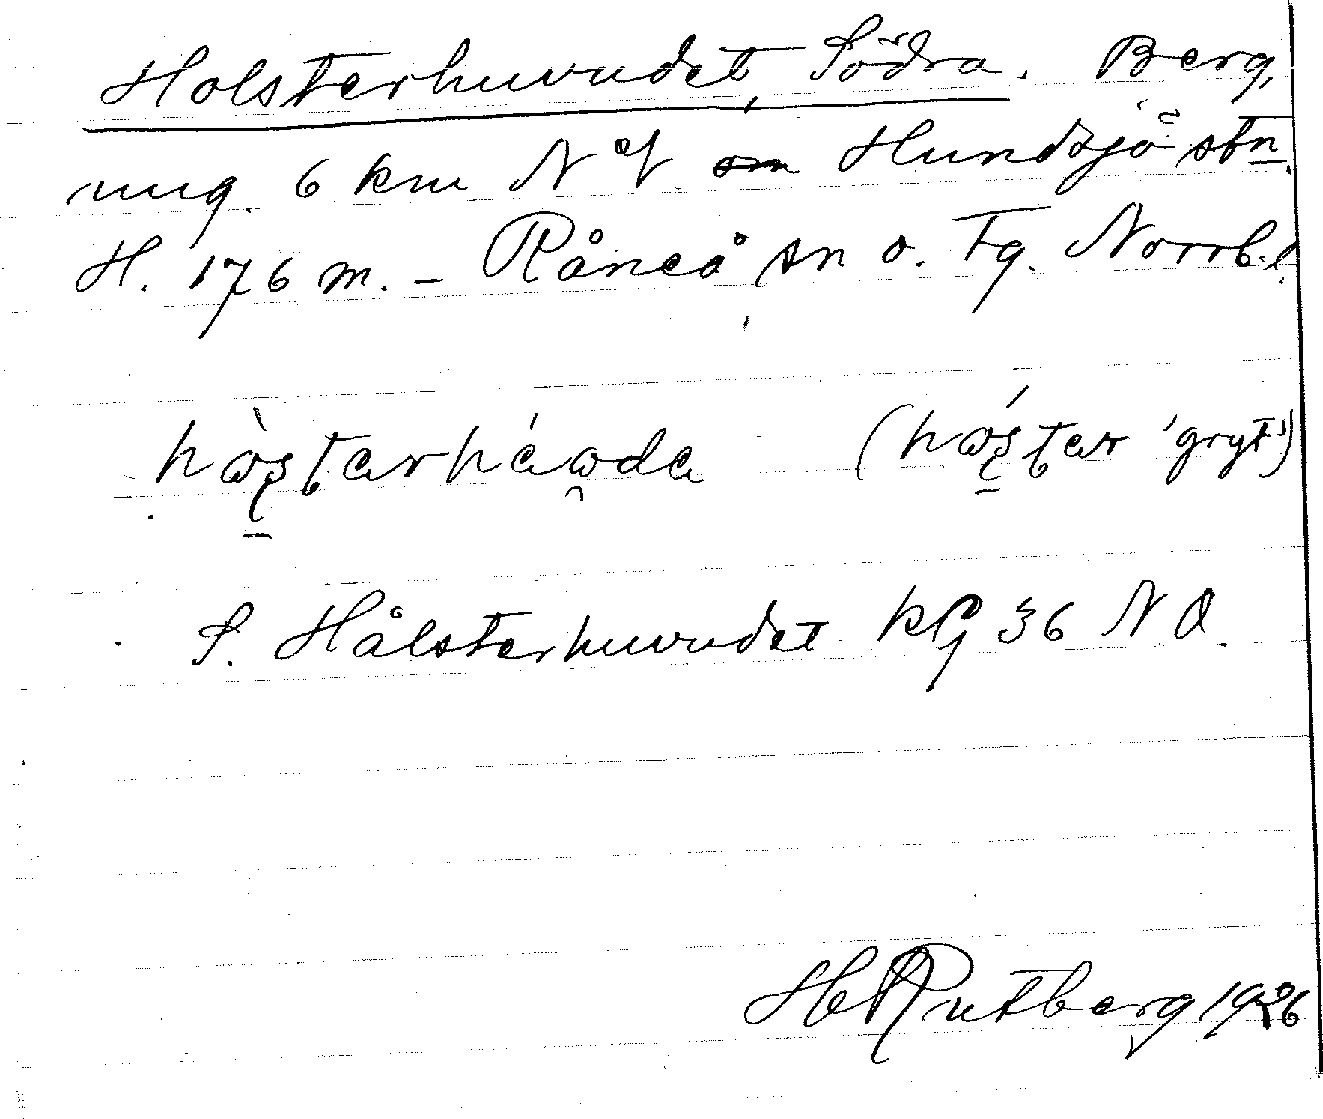 Holsterhuvudet, Södra. Berg,
ung. 6 km N of Hundsjö stn.
H. 176 m. – Råneå sn o. Tg. Norrb. l.
'gryt')
S. Hålsterhuvudet kfg 36 NO.
H Rutberg 1926